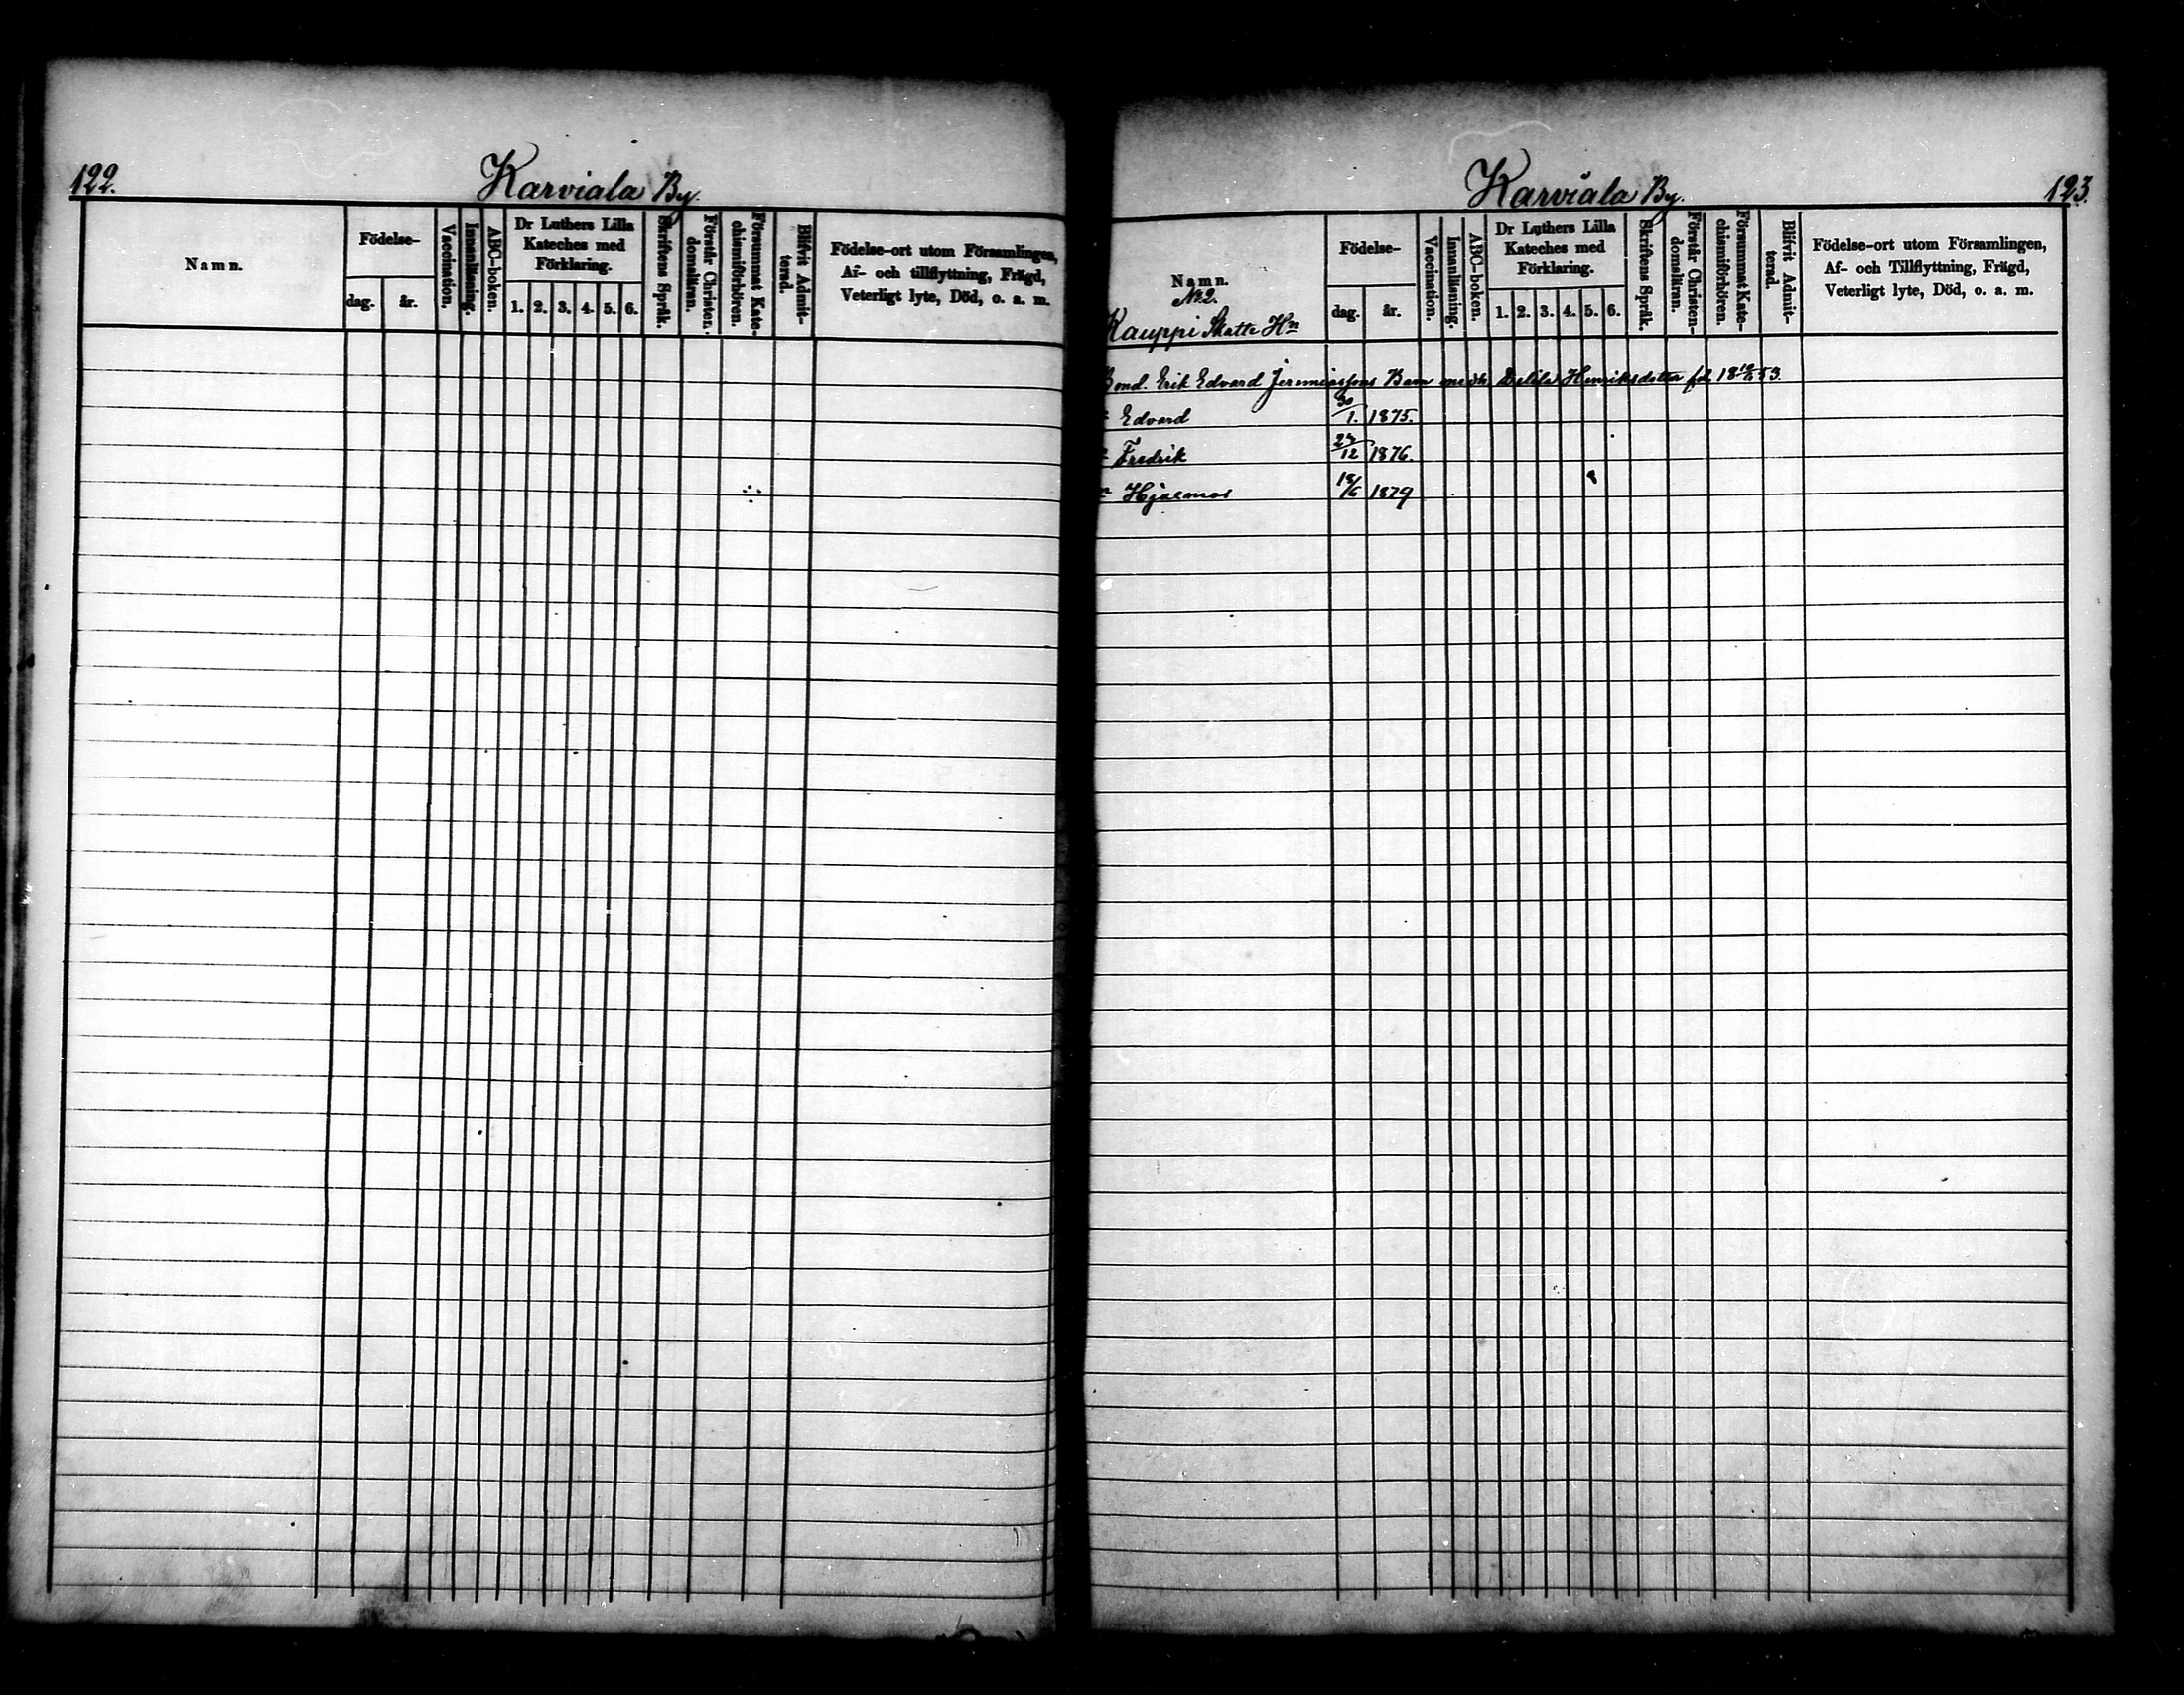 122.
Karviala By.
Namn.
Födelse-
dag.
år.
Vaccination.
Innanläsning.
ABC-boken.
Dr Luthers Lilla
Kateches med
Förklaring.
1. 2. 3. 4. 5. 6.
Skriftens Språk.
Förstår Christen-
domsläran.
Försummat Kate-
chismiförhören.
Blifvit Admit-
terad.
Födelse-ort utom Församlingen,
Af- och tillflyttning, Frägd,
Veterligt lyte, Död, o. a. m.
Karviala By.
123.
Namn.
No 2.
Kauppi Skatte Hn
Födelse-
dag.
år.
Vaccination.
Innanläsning.
ABC-boken.
Dr Luthers Lilla
Kateches med
Förklaring.
1. 2. 3. 4. 5. 6.
Skriftens Språk.
Förstår Christen-
domsläran.
Försummat Kate-
chismiförhören.
Blifvit Admit-
terad.
Födelse-ort utom Församlingen,
Af- och Tillflyttning, Frägd,
Veterligt lyte, Död, o. a. m.
Bond. Erik Edvard Jeremiassons Barn med h. Delila Henriksdotter fd. 18 53.
Edvard 30/1. 1875.
Fredrik /12 1876.
Hjalmar 18/6 1879